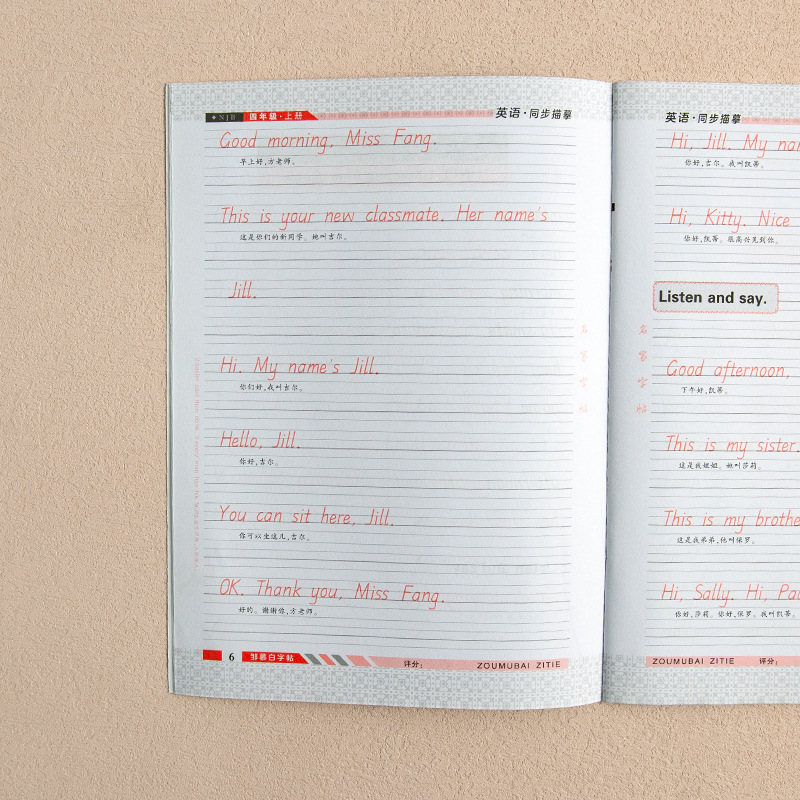 NJB 四年级·上册
英语·同步描摹
Good morning, Miss Fang.
早上好,方老师。
This is your new classmate. Her name's
这是你们的新同学。她叫吉尔。
Jill.
Hi. My name's Jill.
你们好,我叫吉尔。
Hello, Jill.
你好,吉尔。
You can sit here, Jill.
你可以坐这儿,吉尔。
OK. Thank you, Miss Fang.
好的。谢谢你,方老师。
名家字帖
6 邹慕白字帖
评分:
ZOUMUBAI ZITIE
英语·同步描摹
Hi, Jill. My nam
你好,吉尔。我叫凯蒂。
Hi, Kitty. Nice
你好,凯蒂。很高兴见到你。
Listen and say.
名家字帖
Good afternoon,
下午好,凯蒂。
This is my sister.
这是我姐姐。她叫莎莉。
This is my brothe
这是我弟弟,他叫保罗。
Hi, Sally. Hi, Pau
你好,莎莉。你好,保罗。我叫凯蒂。
ZOUMUBAI ZITIE
评分: